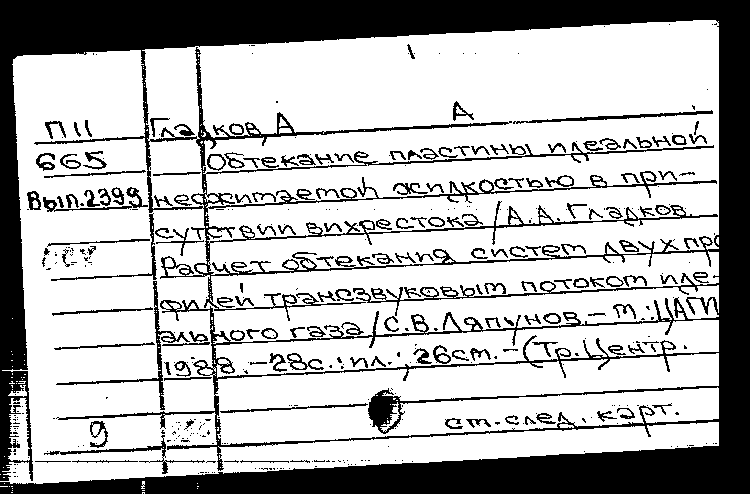 П11 Гладков, А А
665 Обтекание пластины идеальной
Вып.2399 несжимаемой жидкостью в при-
сутствии вихрестока / А.А. Гладков.
Расчет обтекания систем двух про
филей трансзвуковым потоком иде-
ального газа / С.В. Ляпунов. – М.: ЦАГИ
1988. – 28с.: ил.; 26см. – (Тр. Центр.
9 см. след. карт.